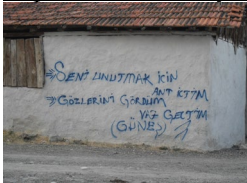 SENİ UNUTMAK İCİN
ANT İCTİM
GÖZLERİNİ GÖRDÜM
VAZ GECTİM
(GÜNEŞ)